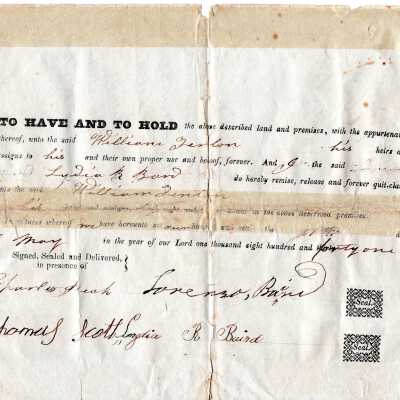 TO HAVE AND TO HOLD the above described land and premises, with the appurtenan
thereof, unto the said William Fenton his heirs a
ssigns to his and their own proper use and behoof, forever. And I the said
Lydia R Baird do hereby remise, release and forever quit-cla
unto the said William Fenton
in the above described premises.
whereof we have hereunto set the
May in the year of our Lord one thousand eight hundred and forty one
Signed, Sealed and Delivered,
in presence of
Charles Lorenzo Baird Seal.
Thomas Scott Lydia R Baird Seal.